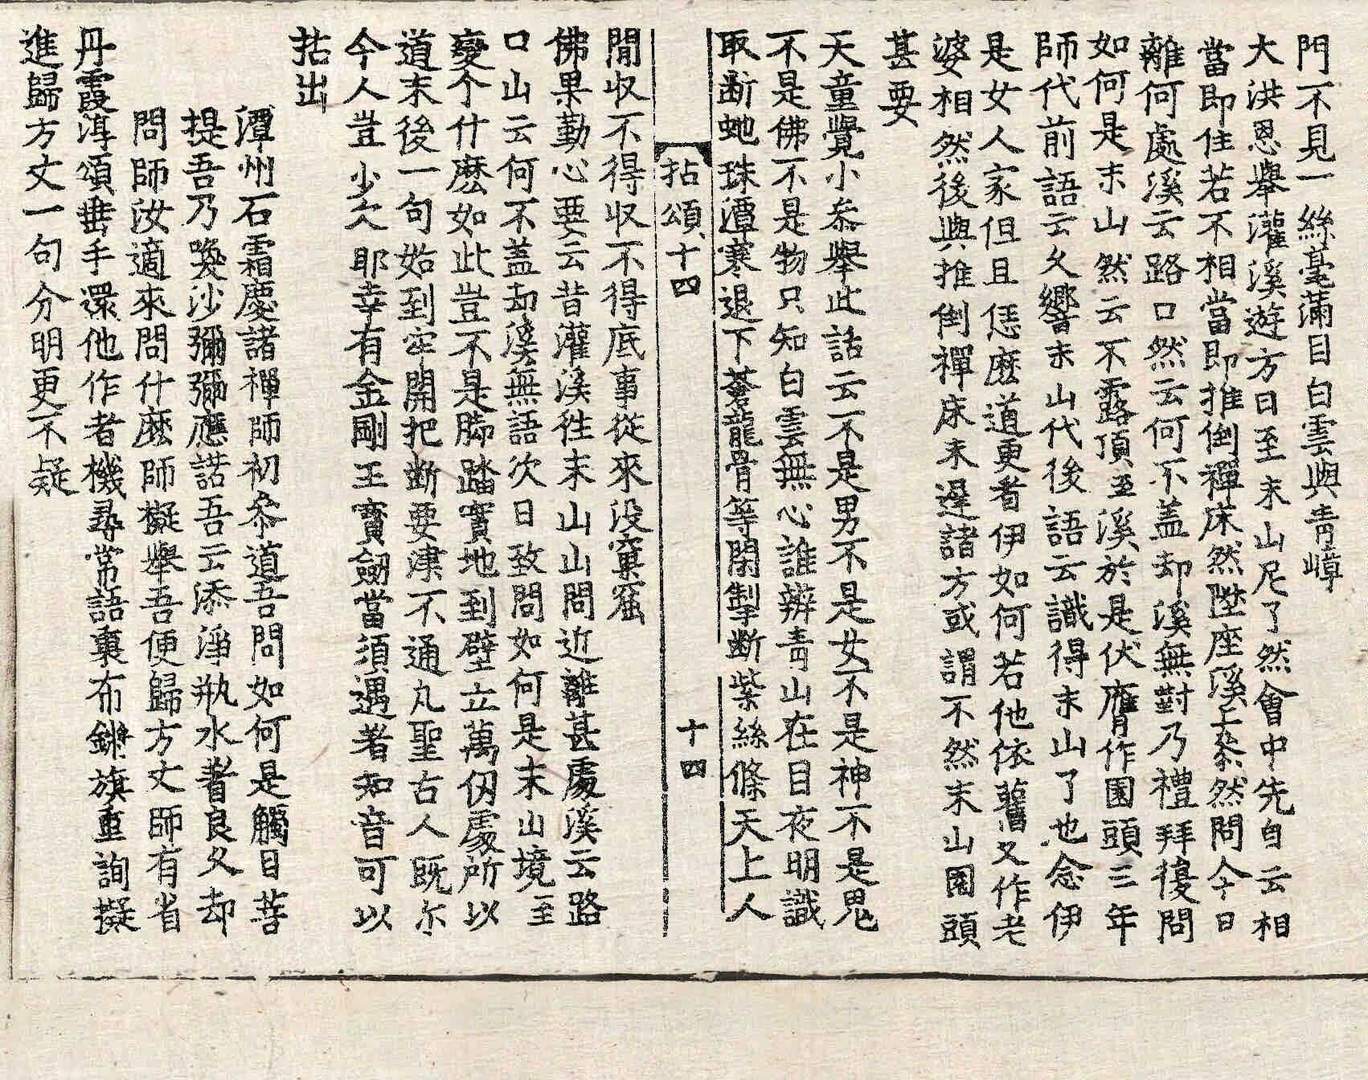 門不見一絲毫滿目白雲與靑嶂
大洪恩擧灌溪遊方日至末山尼了然會中先白云相
當即住若不相當即推倒禪床然陞座溪上叅然問今日
離何處溪云路口然云何不盖却溪無對乃禮拜後問
如何是末山然云不露頂至溪於是伏膺作園頭三年
師代前語云久響末山代後語云識得末山了也念伊
是女人家但且恁麽道更看伊如何若他依舊又作老
婆相然後與推倒禪床未遲諸方或謂不然末山園頭
甚要
天童覺小叅擧此話云不是男不是女不是神不是鬼
不是佛不是物只知白雲無心誰辨靑山在目夜明識
取斷虵珠潭寒退下蒼龍骨等閑掣斷紫絲絛天上人
拈頌十四 十四
閒収不得収不得底事從來没窠窟
佛果勤心要云昔灌溪徃末山山問近離甚處溪云路
口山云何不盖却溪無語次日致問如何是末山境至
變个什麽如此豈不是脚踏實地到壁立萬仞處所以
道末後一句始到牢關把斷要津不通凡聖古人既尒
今人豈少欠耶幸有金剛王寳劒當須遇著知音可以
拈出
潭州石霜慶諸禪師初叅道吾問如何是觸目菩
提吾乃喚沙彌彌應諾吾云添淨瓶水著良久却
問師汝適來問什麽師擬擧吾便歸方丈師有省
丹霞淳頌垂手還他作者機尋常語裏布鏘旗重詢擬
進歸方丈一句分明更不疑